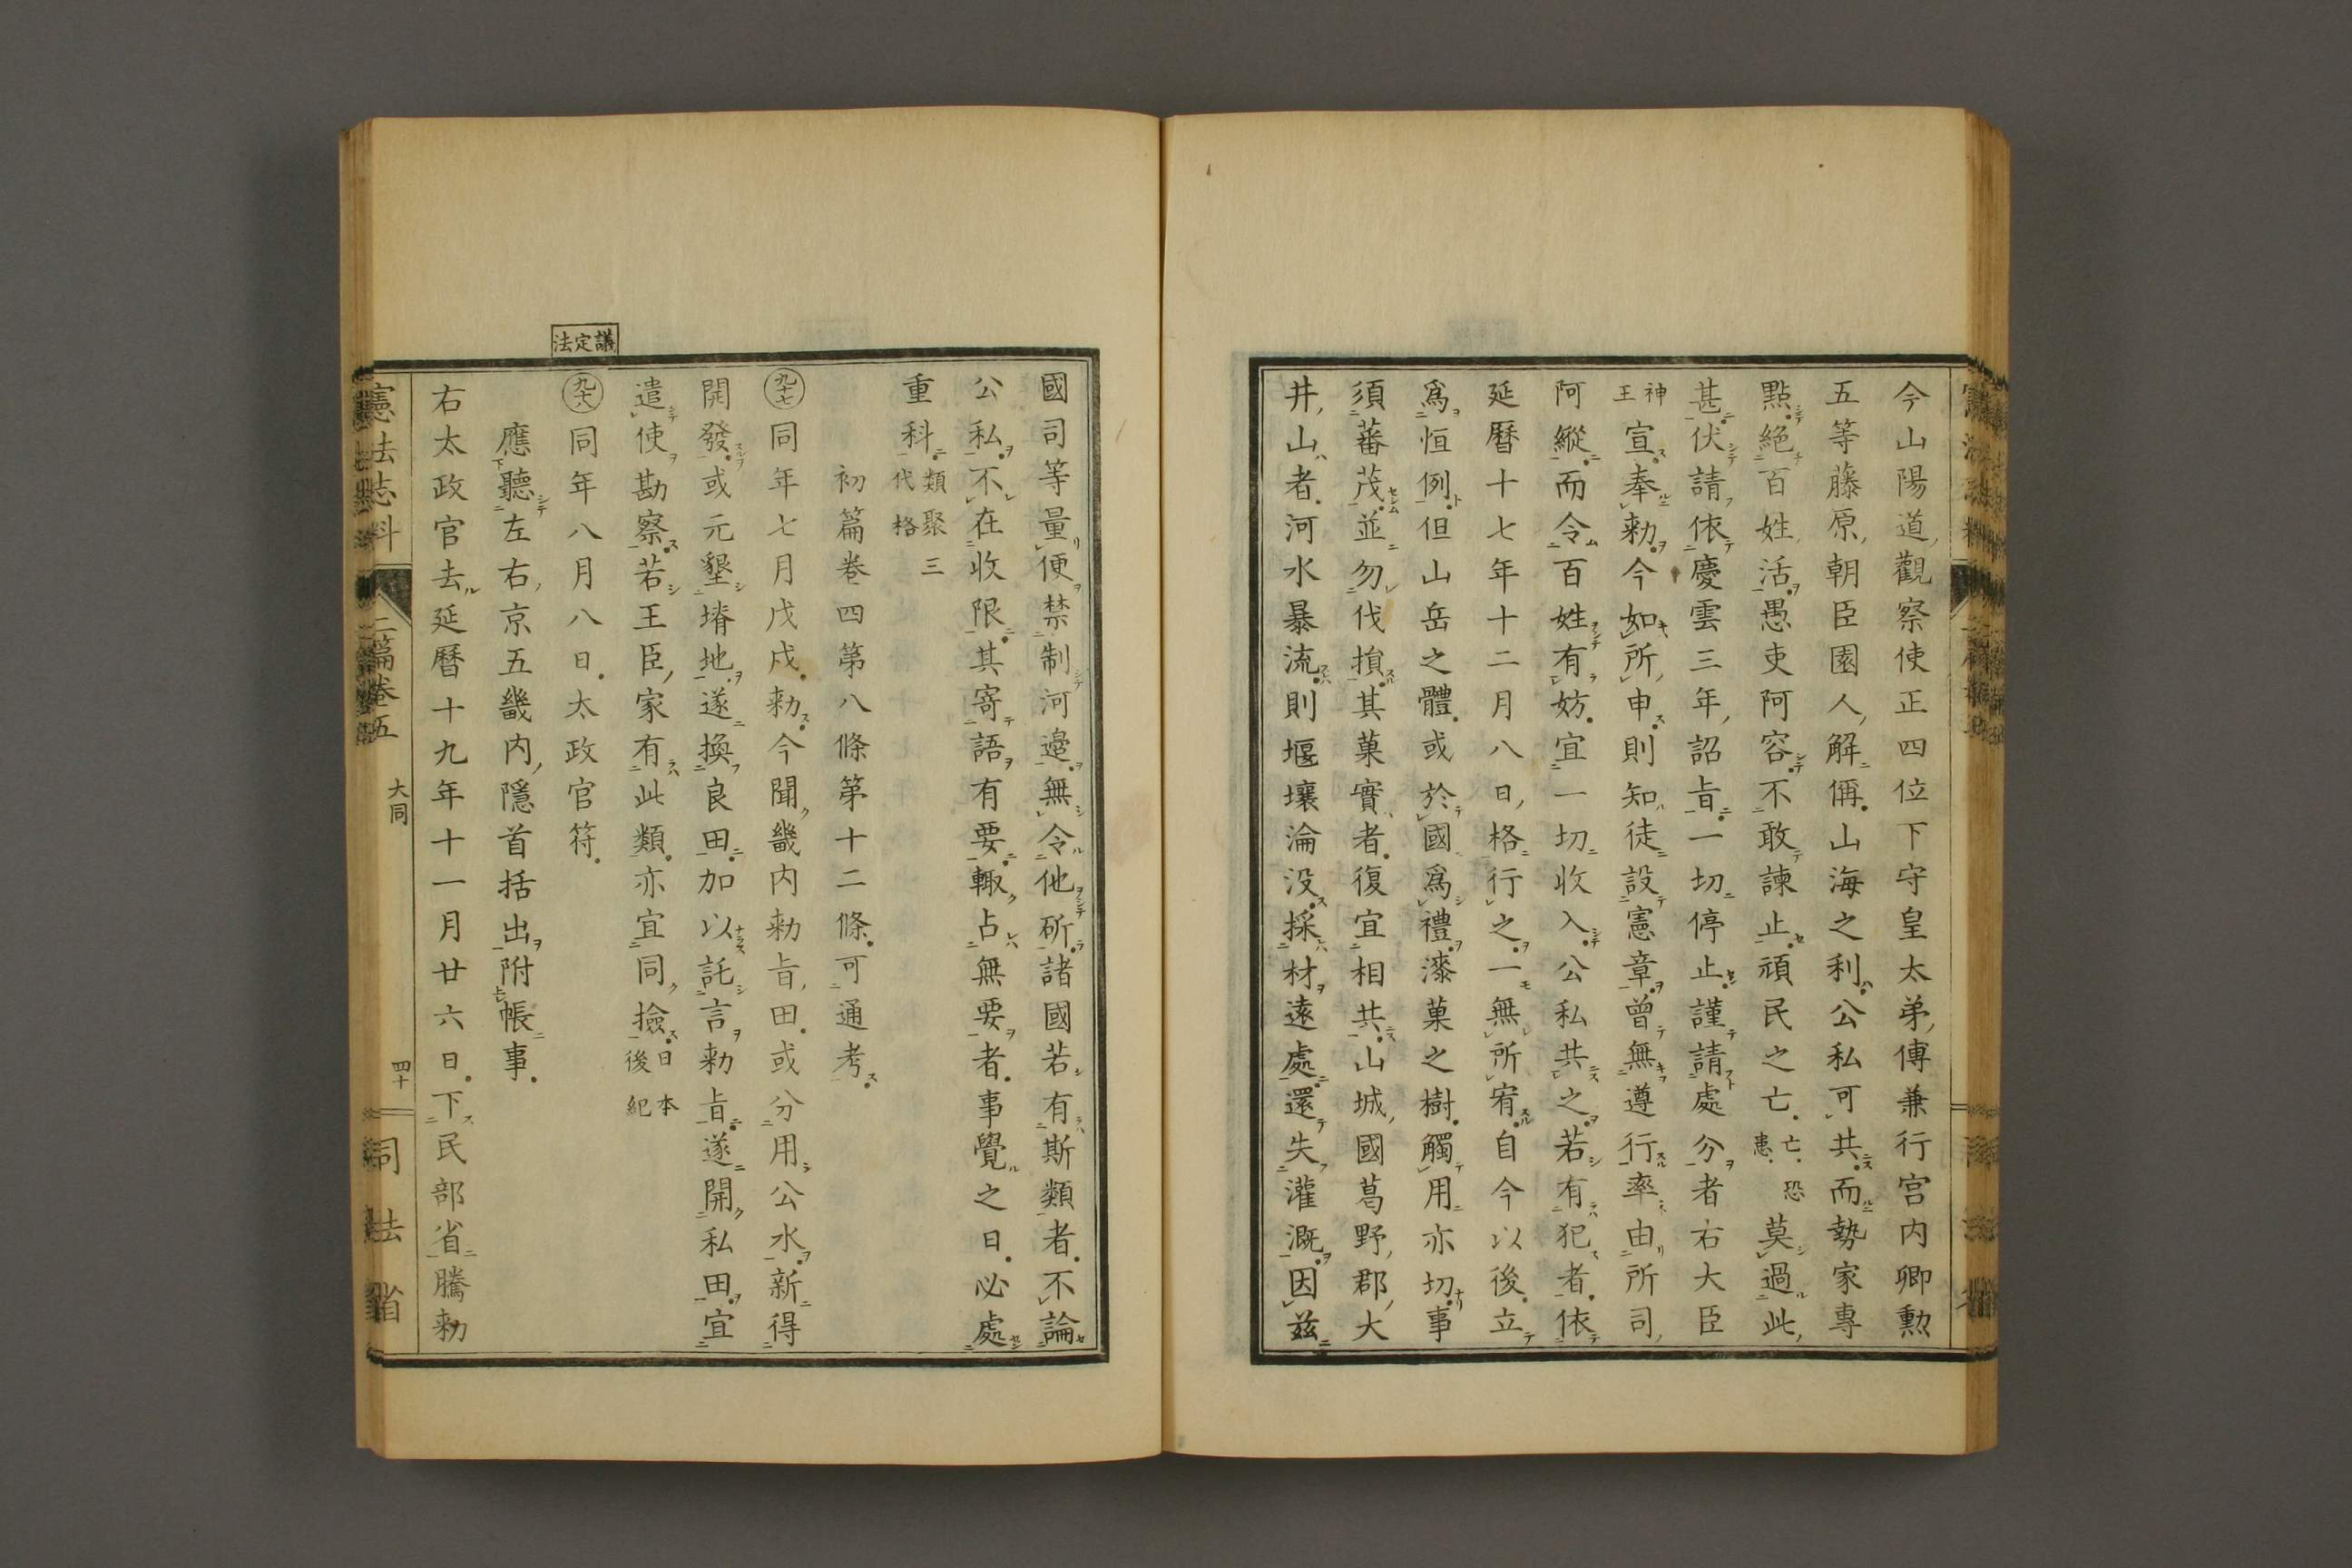 今山陽道觀察使正四位下守皇太弟傅兼行宮内卿勲
五等藤原朝臣園人解偁山海之利公私可共而勢家專
點絕百姓活愚吏阿容不敢諫止頑民之亡亡恐恚莫過此
甚伏請依慶雲三年詔旨一切停止謹請處分者右大臣
神王宣奉勅今如所申則知徒設憲章曾無遵行率由所司
阿縱而令百姓有妨宜一切收入公私共之若有犯者依
延曆十七年十二月八日格行之一無所宥自今以後立
爲恒例但山岳之體或於國爲禮漆菓之樹觸用亦切事
須蕃茂並勿伐損其菓實者復宜相共山城國葛野郡大
井山者河水暴流則堰壤淪没採材遠處還失灌溉因茲
國司等量便禁制河邊無令他斫諸國若有斯類者不論
公私不在收限其寄語有要輙占無要者事覺之日必處
重科類聚三代格
初篇卷四第八條第十二條可通考
九十七同年七月戊戌勅今聞畿内勅旨田或分用公水新得
開發或元墾塉地遂換良田加以託言勅旨遂開私田宜
遣使勘察若王臣家有此類亦宜同撿日本後紀
議定法
九十八同年八月八日太政官符
應聽左右京五畿内隱首括出附帳事
右太政官去延曆十九年十一月廿六日下民部省騰勅
憲法志料 二篇卷五 大同 四十 司法省